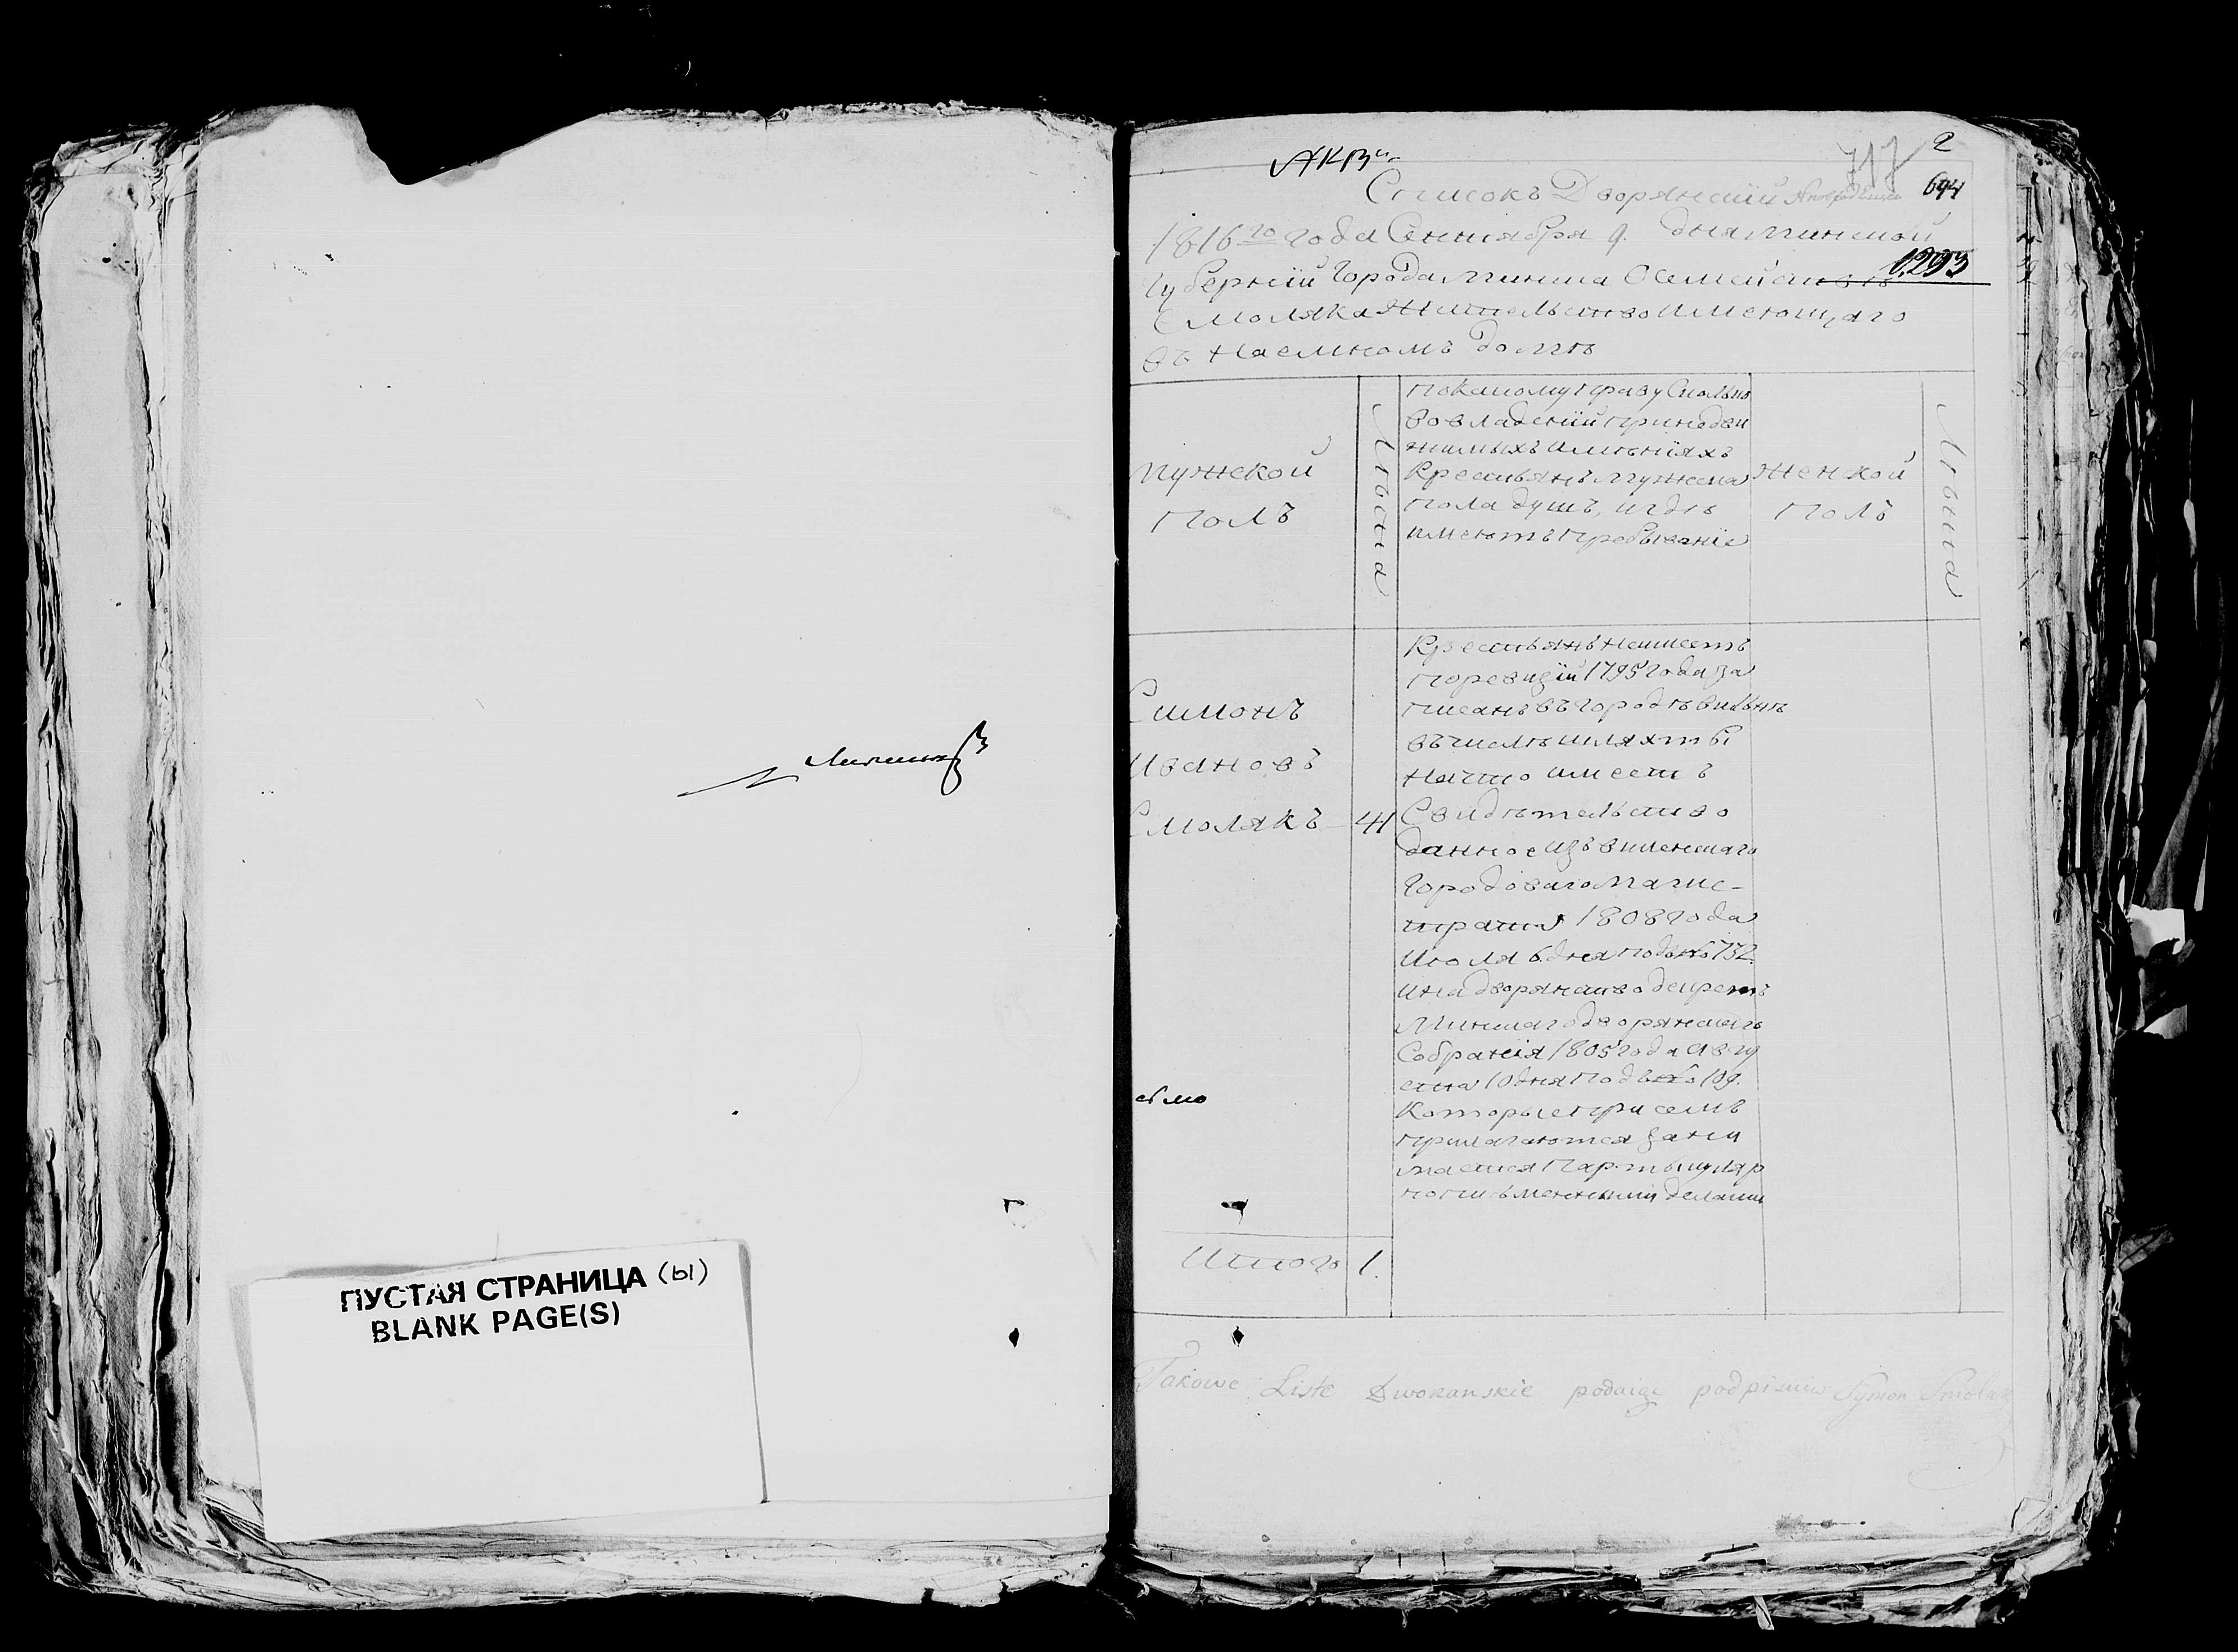 ПУСТАЯ СТРАНИЦА (ы)
BLANK PAGE(S)
2
717
694
Списокъ Дворянскій
1816го года Сентября 9. дня Минской
1,293
Губерніи Города Минска О Семействѣ
Смоляка Жительство имеющаго
въ Наемномъ домѣ
Мужеской
Полъ
Лѣта
По какому праву Сколько
во владеніи при недви
жимыхъ именіяхъ
Крестьянъ Мужеска
пола душъ, и гдѣ
имеютъ пребываніе
Женской
Полъ
Лѣта
Симонъ
Ивановъ
Смолякъ 41
Крестьянъ Неимеетъ
По ревизіи 1795 года за
писанъ въ городѣ Вильнѣ
въ числѣ шляхты
На что имеетъ
Свидѣтельство
данное изъ Виленскаго
Городоваго Магис-
трата 1808 года
Июля 6. дня подъ № 732.
и на дворянство декретъ
Минскаго дворянскаго
Собранія 1805 года Авгу
ста 10 дня подъ № 109.
Которые при семъ
прилагаются зани
мается Партыкуляр
но письменными делами
Итого 1.
Takowe Liste Dworanskie podaige podpisuie Symon Smolak